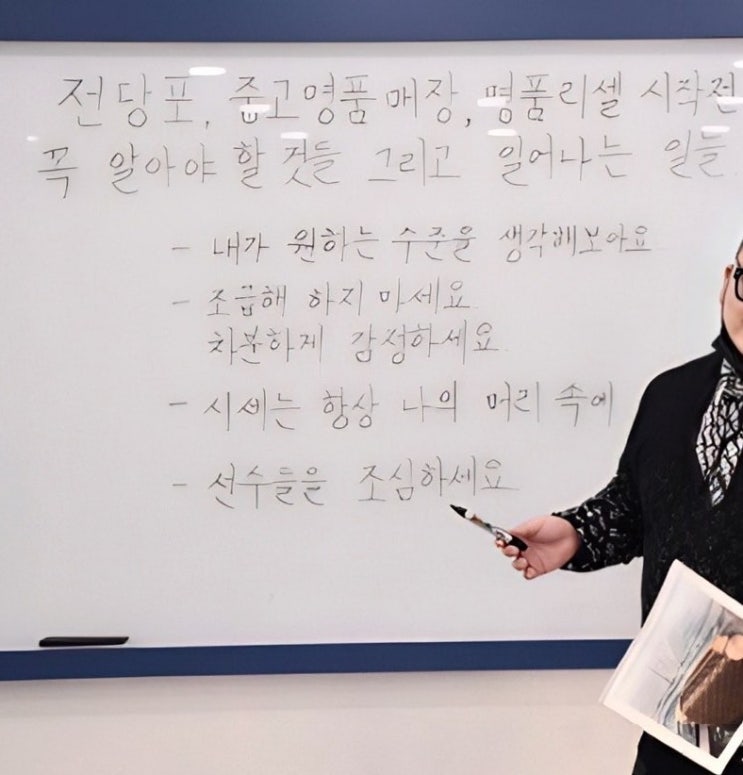 전당포, 중고명품매장, 명품리셀 시작전
꼭 알아야 할 것들 그리고 일어나는 일들
- 내가 원하는 수준을 생각해보아요
- 조급해 하지 마세요
차분하게 감정하세요
- 시세는 항상 나의 머리 속에
- 선수들을 조심하세요